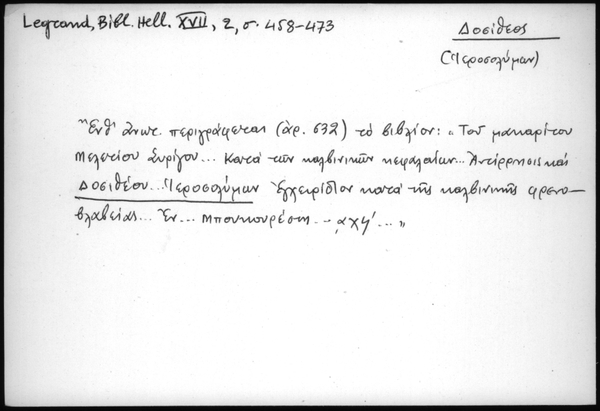 Legrand, Bibl. Hell. XVII, 2, σ. 458-473
Δοσίθεος
(Ἱεροσολύμων)
Ἔνθ' ἀνωτ. περιγράφεται (ἀρ. 632) τὸ βιβλίον: "Τοῦ μακαρίτου
Μελετίου Συρίγου... Κατὰ τῶν καλβινικῶν κεφαλαίων... Ἀντίρρησις καὶ
Δοσιθέου... Ἱεροσολύμων Ἐγχειρίδιον κατὰ τῆς καλβινικῆς φρενο-
βλαβείας... Ἐν... Μπουκουρέστῃ... ͵αχϟ'..."